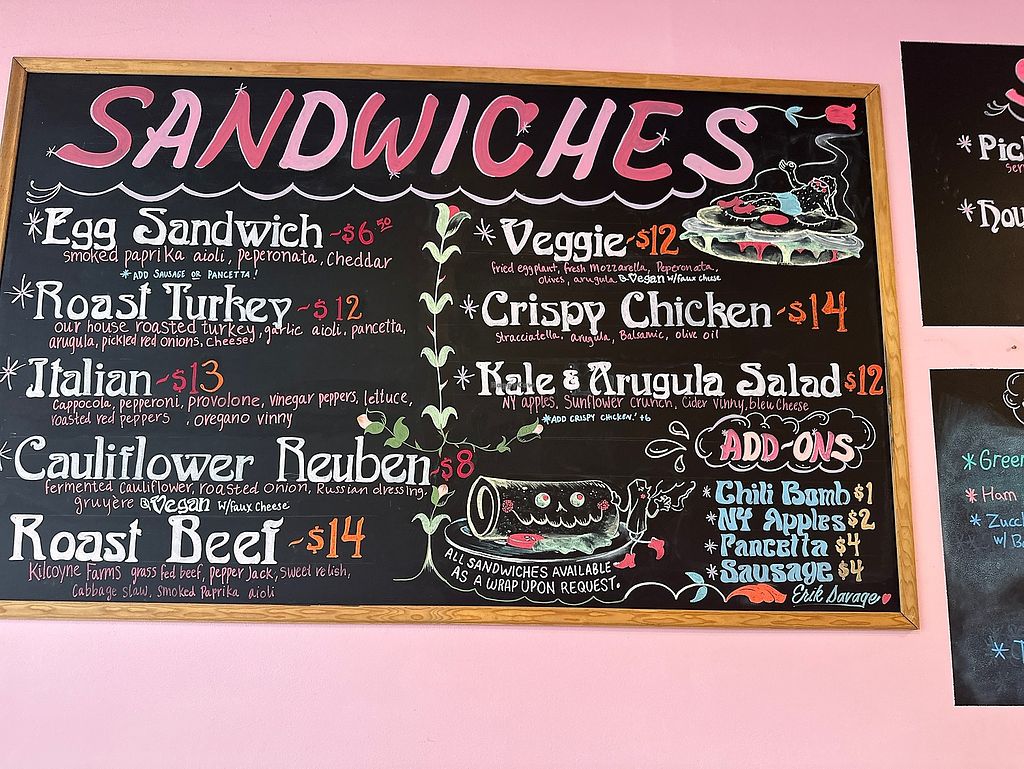 SANDWICHES
Egg Sandwich ~$6.50
smoked paprika aioli, peperonata, cheddar
*ADD SAUSAGE OR PANCETTA!
Roast Turkey ~$12
our house roasted turkey, garlic aioli, pancetta,
arugula, pickled red onions, cheese
Italian ~$13
Cappocola, pepperoni, provolone, vinegar peppers, lettuce,
roasted red peppers, oregano vinny
Cauliflower Reuben $8
fermented cauliflower, roasted onion, Russian dressing,
gruyère Vegan w/faux cheese
Roast Beef ~$14
Kilcoyne Farms grass fed beef, pepper Jack, sweet relish,
Cabbage slaw, smoked Paprika aioli
Veggie ~$12
fried eggplant, fresh mozzarella, Peperonata,
olives, arugula Vegan w/faux cheese
Crispy Chicken ~$14
Stracciatella, arugula, Balsamic, olive oil
Kale & Arugula Salad $12
NY apples, Sunflower crunch, Cider Vinny, bleu cheese
*ADD CRISPY CHICKEN! +6
ADD-ONS
*Chili Bomb $1
*NY Apples $2
*Pancetta $4
*Sausage $4
ALL SANDWICHES AVAILABLE
AS A WRAP UPON REQUEST.
Erik Savage
*Green
*Ham
*Zucc
w/